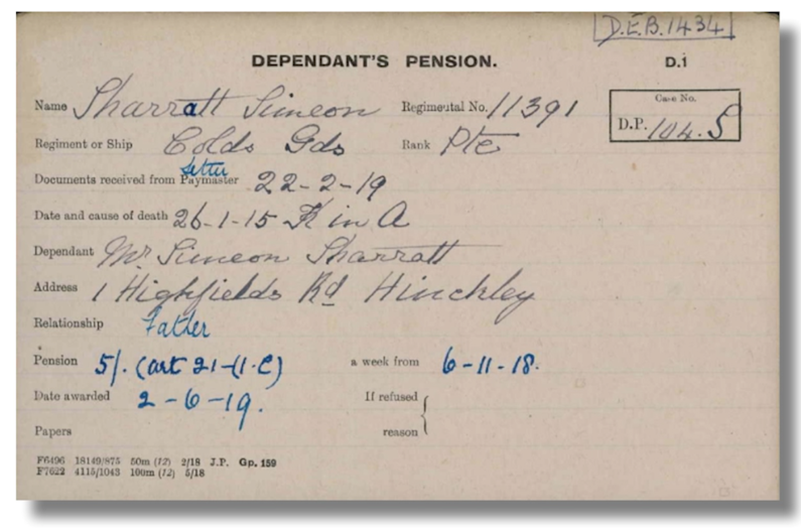 D.E.B.1434
DEPENDANT'S PENSION. D.1
Name Sharratt Simeon Regimental No. 11391 Case No.
D.P. 104.S
Regiment or Ship Colds Gds Rank Pte
letter
Documents received from Paymaster 22-2-19
Date and cause of death 26-1-15 K in A
Dependant Mr Simeon Sharratt
Address 1 Highfields Rd Hinckley
Relationship Father
Pension 5/. (art 21-(1.C) a week from 6-11-18.
Date awarded 2-6-19. If refused
Papers reason
F6496 18149/875 50m (12) 2/18 J.P. Gp. 159
F7622 4115/1043 100m (12) 5/18